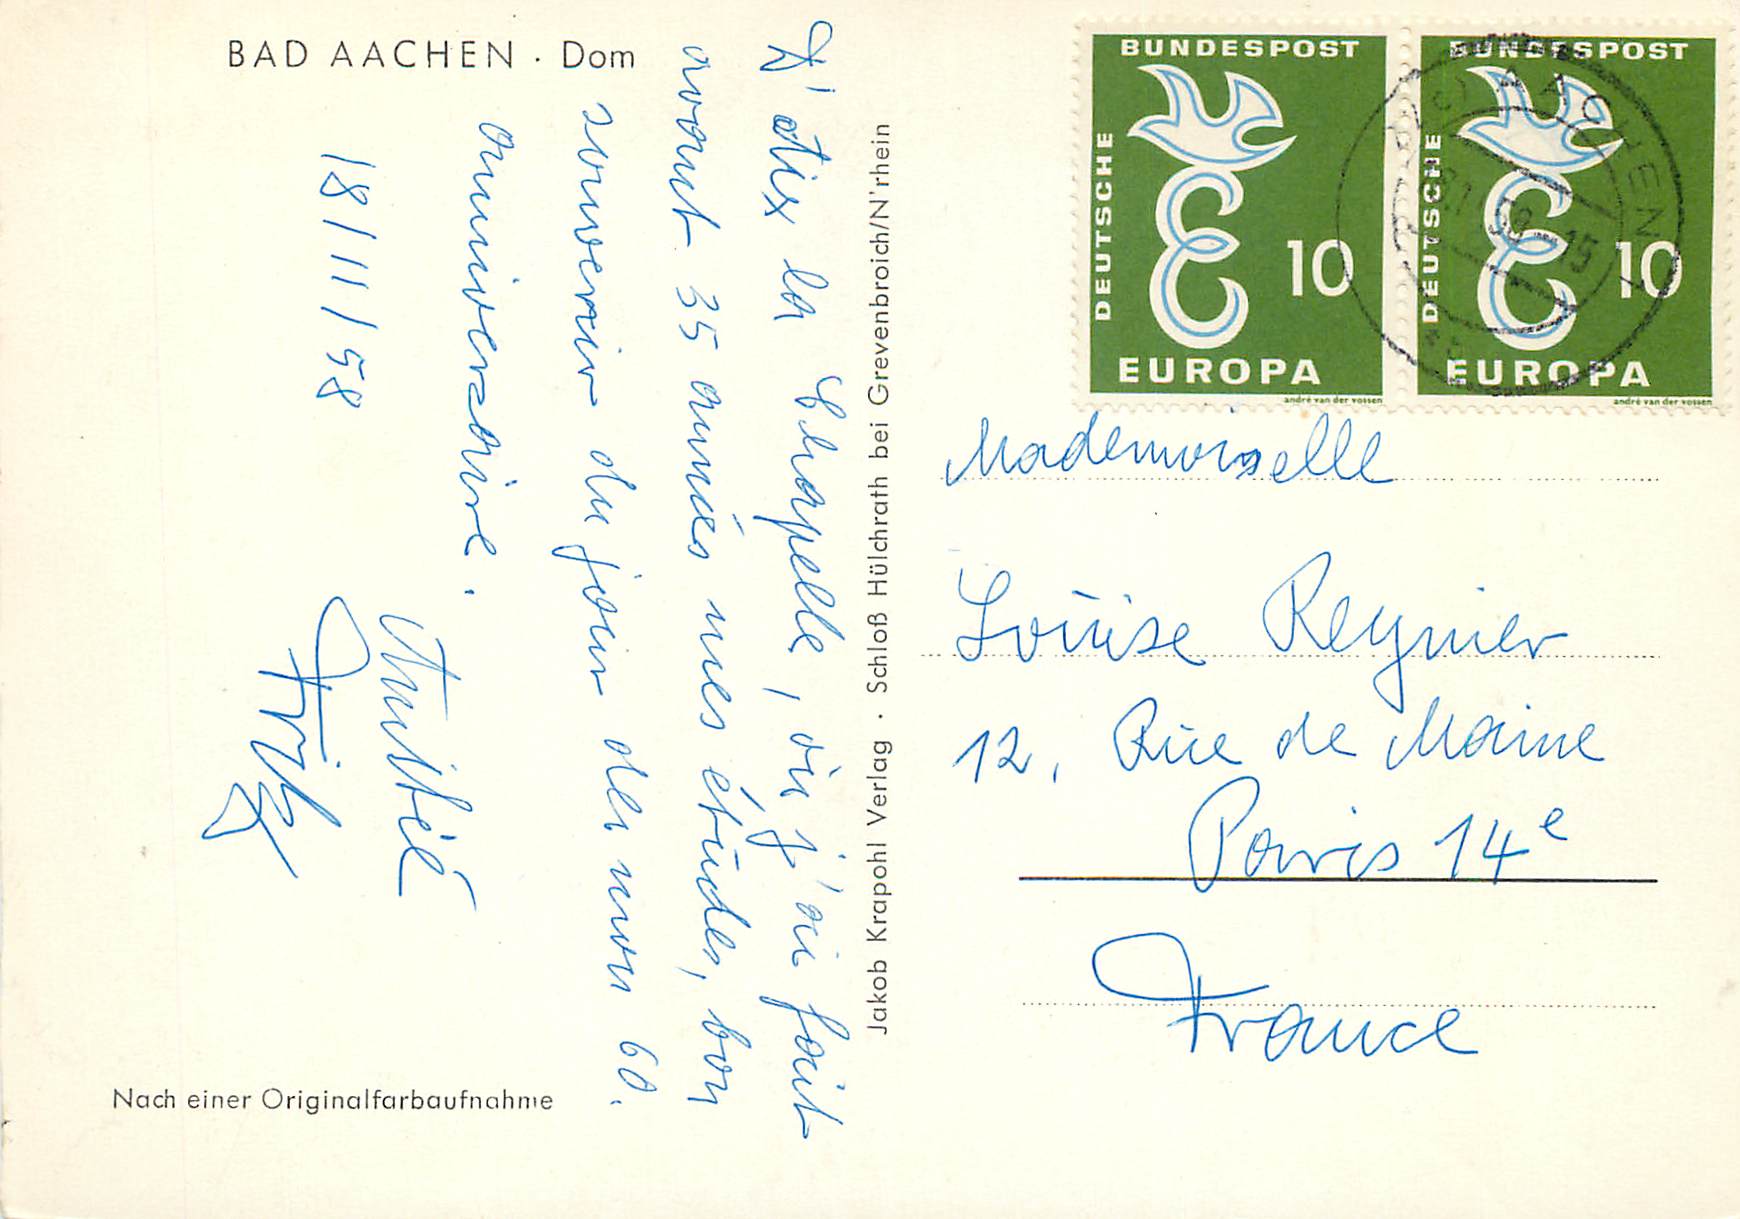 BAD AACHEN · Dom
D'Aix la Chapelle, où j'ai fait
avant 35 années mes études, bon
souvenir du jour de mon 60.
anniversaire.
18/11/58
Amitié
Fritz
Nach einer Originalfarbaufnahme
Jakob Krapohl Verlag · Schloß Hülchrath bei Grevenbroich/N'rhein
DEUTSCHE BUNDESPOST
10
EUROPA
andré van der vossen
DEUTSCHE BUNDESPOST
10
EUROPA
andré van der vossen
AACHEN 1
Mademoiselle
Louise Reynier
12, Rue de Maine
Paris 14e
France